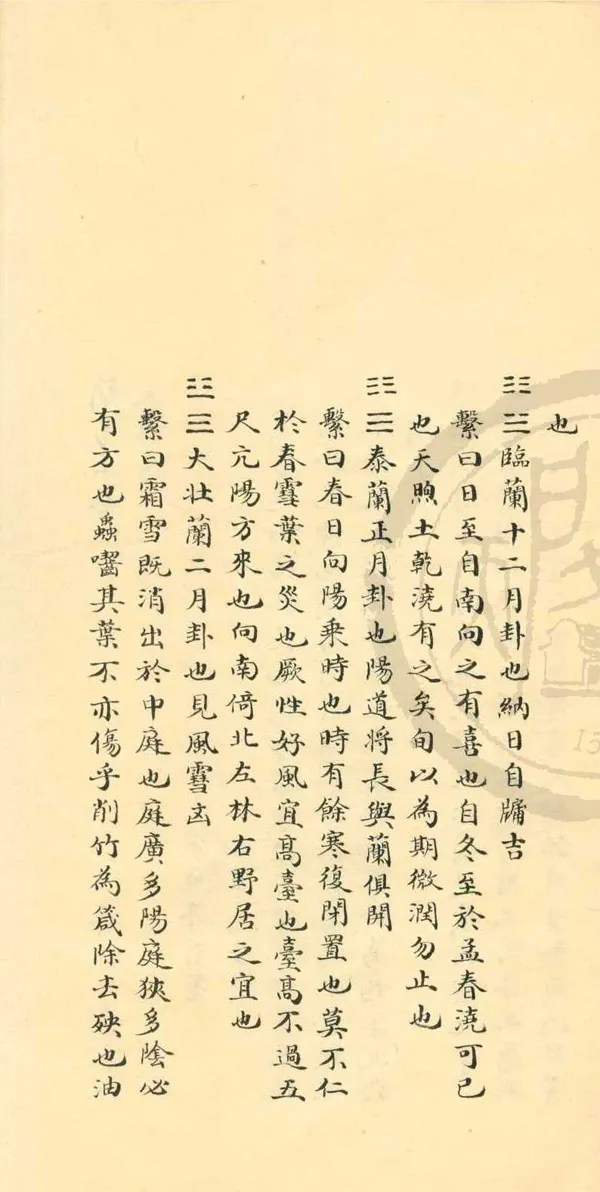 也
䷒臨蘭十二月卦也納日自牖吉
繫曰日至自南向之有喜也自冬至於孟春澆可已
也天煦土乾澆有之矣旬以為期微潤勿止也
䷊泰蘭正月卦也陽道將長與蘭俱開
繫曰春日向陽乘時也時有餘寒復閉置也莫不仁
於春雪葉之災也厥性好風宜高臺也臺高不過五
尺亢陽方來也向南倚北左林右野居之宜也
䷡大壯蘭二月卦也見風雪凶
繫曰霜雪既消出於中庭也庭廣多陽庭狹多陰必
有方也蟲嚙其葉不亦傷乎削竹為箴除去殃也油
15